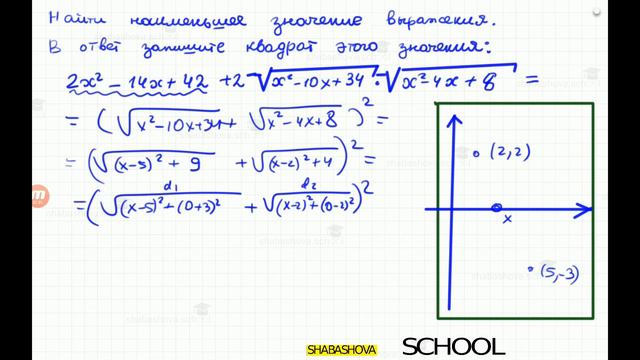 Найти наименьшее значение выражения.
В ответ запишите квадрат этого значения:
2x² – 14x + 42 + 2 √x² – 10x + 34 · √x² – 4x + 8 =
= (√x² – 10x + 34 + √x² – 4x + 8)² =
= (√(x–5)² + 9 + √(x–2)² + 4)² =
d₁ d₂
= (√(x–5)² + (0+3)² + √(x–2)² + (0–2)²)²
(2,2)
x
(5,–3)
SHABASHOVA SCHOOL